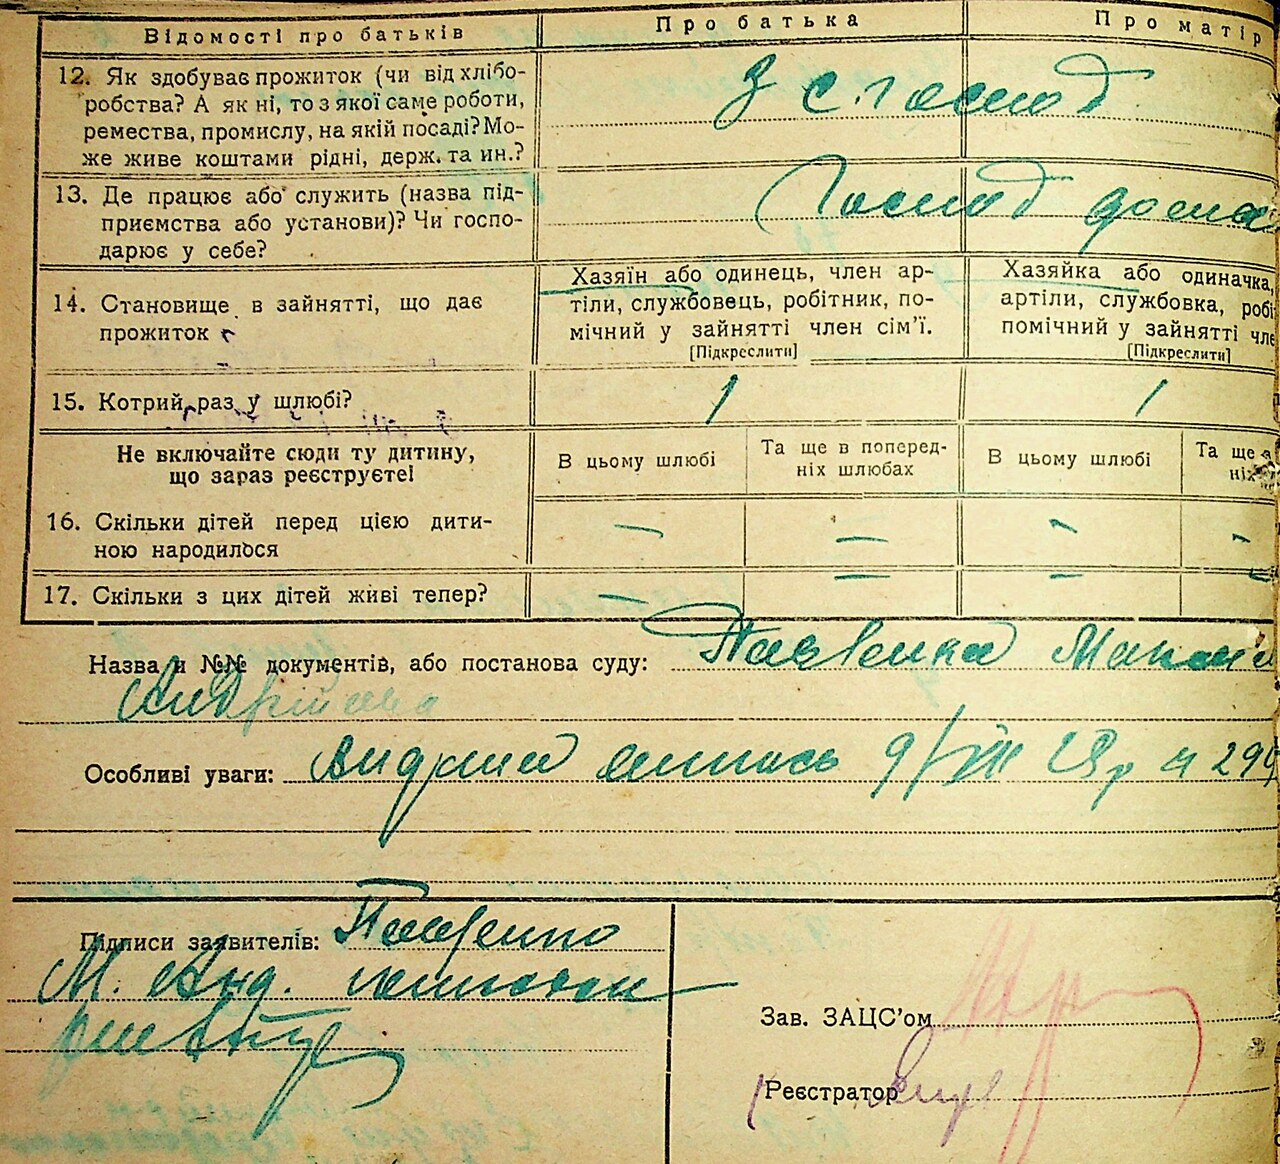 Відомості про батьків
Про батька
Про матір
12. Як здобуває прожиток (чи від хлібо-
робства? А як ні, то з якої саме роботи,
ремества, промислу, на якій посаді? Мо-
же живе коштами рідні, держ. та ин.?
З с. господ
13. Де працює або служить (назва під-
приємства або установи)? Чи госпо-
дарює у себе?
Господ дома
14. Становище в зайнятті, що дає
прожиток
Хазяїн або одинець, член ар-
тіли, службовець, робітник, по-
мічний у зайнятті член сім'ї.
[Підкреслити]
Хазяйка або одиначка,
артіли, службовка, робі
помічний у зайнятті чле
[Підкреслити]
15. Котрий раз у шлюбі?
1
1
Не включайте сюди ту дитину,
що зараз реєструєте!
В цьому шлюбі
Та ще в поперед-
ніх шлюбах
В цьому шлюбі
Та ще в
ніх
16. Скільки дітей перед цією дити-
ною народилося
— — — —
17. Скільки з цих дітей живі тепер?
— — — —
Назва и №№ документів, або постанова суду:
Андрійовна
Особливі уваги: 9/VIII 28р 299
Підписи заявителів:
М. Анд.
Зав. ЗАЦС'ом
Реєстратор